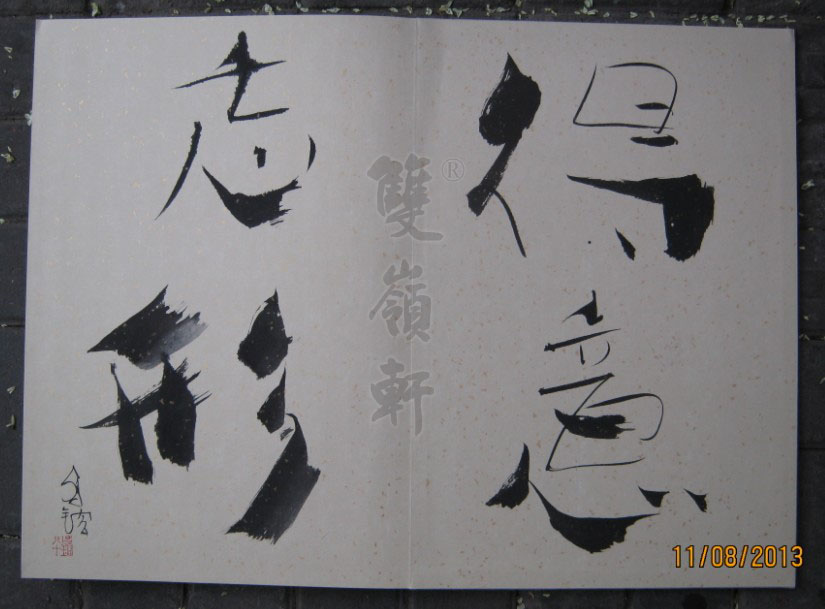 得意
忘形
雙嶺軒®
11/08/2013